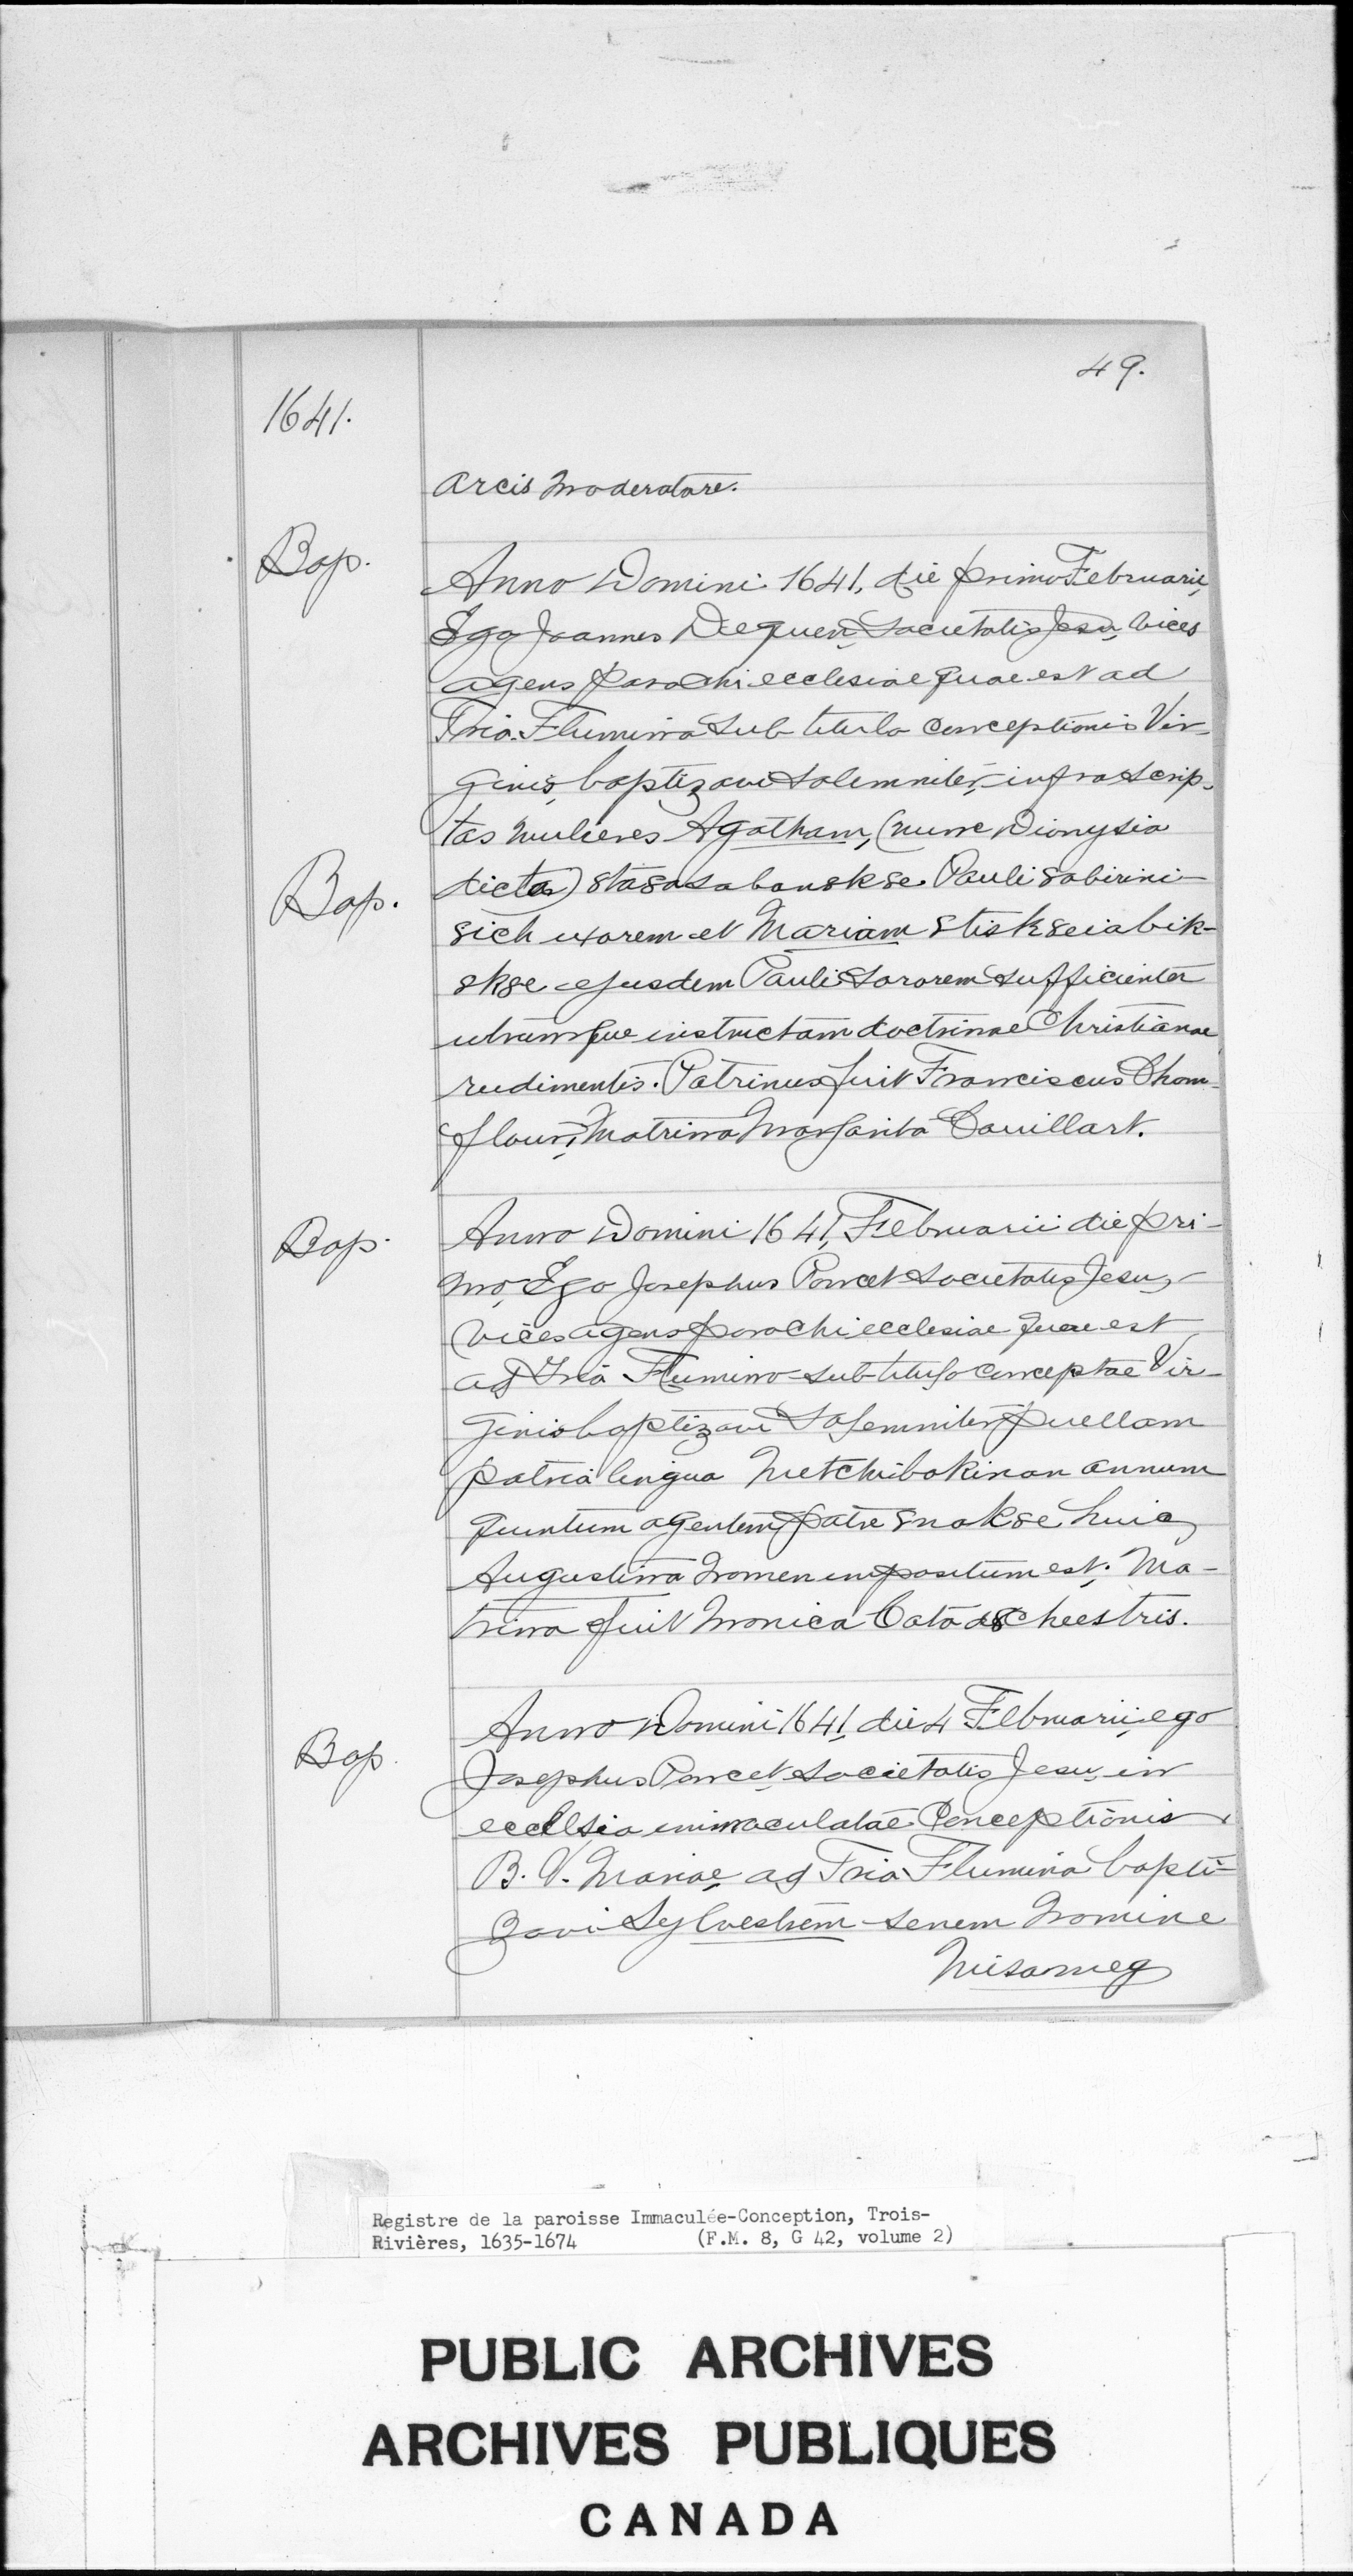 49.
1641.
arcis moderatore.
Bap.
Anno Domini 1641, die primo Februarii,
Ego Joannes Dequen, Societatis Jesu, vices
agens parochi ecclesiae quae est ad
Tria Flumina sub titulo conceptionis Vir-
ginis, baptizavi solemniter infra scrip-
tas mulieres Agatham, (nunc Dionysia
Bap.
dicta) 8tasasabansk8e. Pauli 8abirini-
8ich uxorem et Mariam 8tisk8eiabik-
8k8e ejusdem Pauli sororem sufficienter
utramque instructam doctrinae Christianae
rudimentis. Patrinus fuit Franciscus Cham-
flour, Matrina Margarita Couillart.
Bap.
Anno Domini 1641, Februarii die pri-
mo, Ego Josephus Poncet Societatis Jesu,
vices agens parochi ecclesiae quae est
ad Tria Flumina sub titulo conceptae Vir-
ginis baptizavi solemniter puellam
patria lingua Metchibakinan annum
quintum agentem, patre 8nak8e huic
Augustina nomen impositum est. Ma-
trina fuit Monica Cata8cheestris.
Bap.
Anno Domini 1641, die 4 Februarii, ego
Josephus Poncet, Societatis Jesu, in
ecclesia immaculatae Conceptionis
B. V. Mariae, ad Tria Flumina bapti-
zavi Sylvestrem senem nomine
Misameg
Registre de la paroisse Immaculée-Conception, Trois-
Rivières, 1635-1674 (F.M. 8, G 42, volume 2)
PUBLIC ARCHIVES
ARCHIVES PUBLIQUES
CANADA